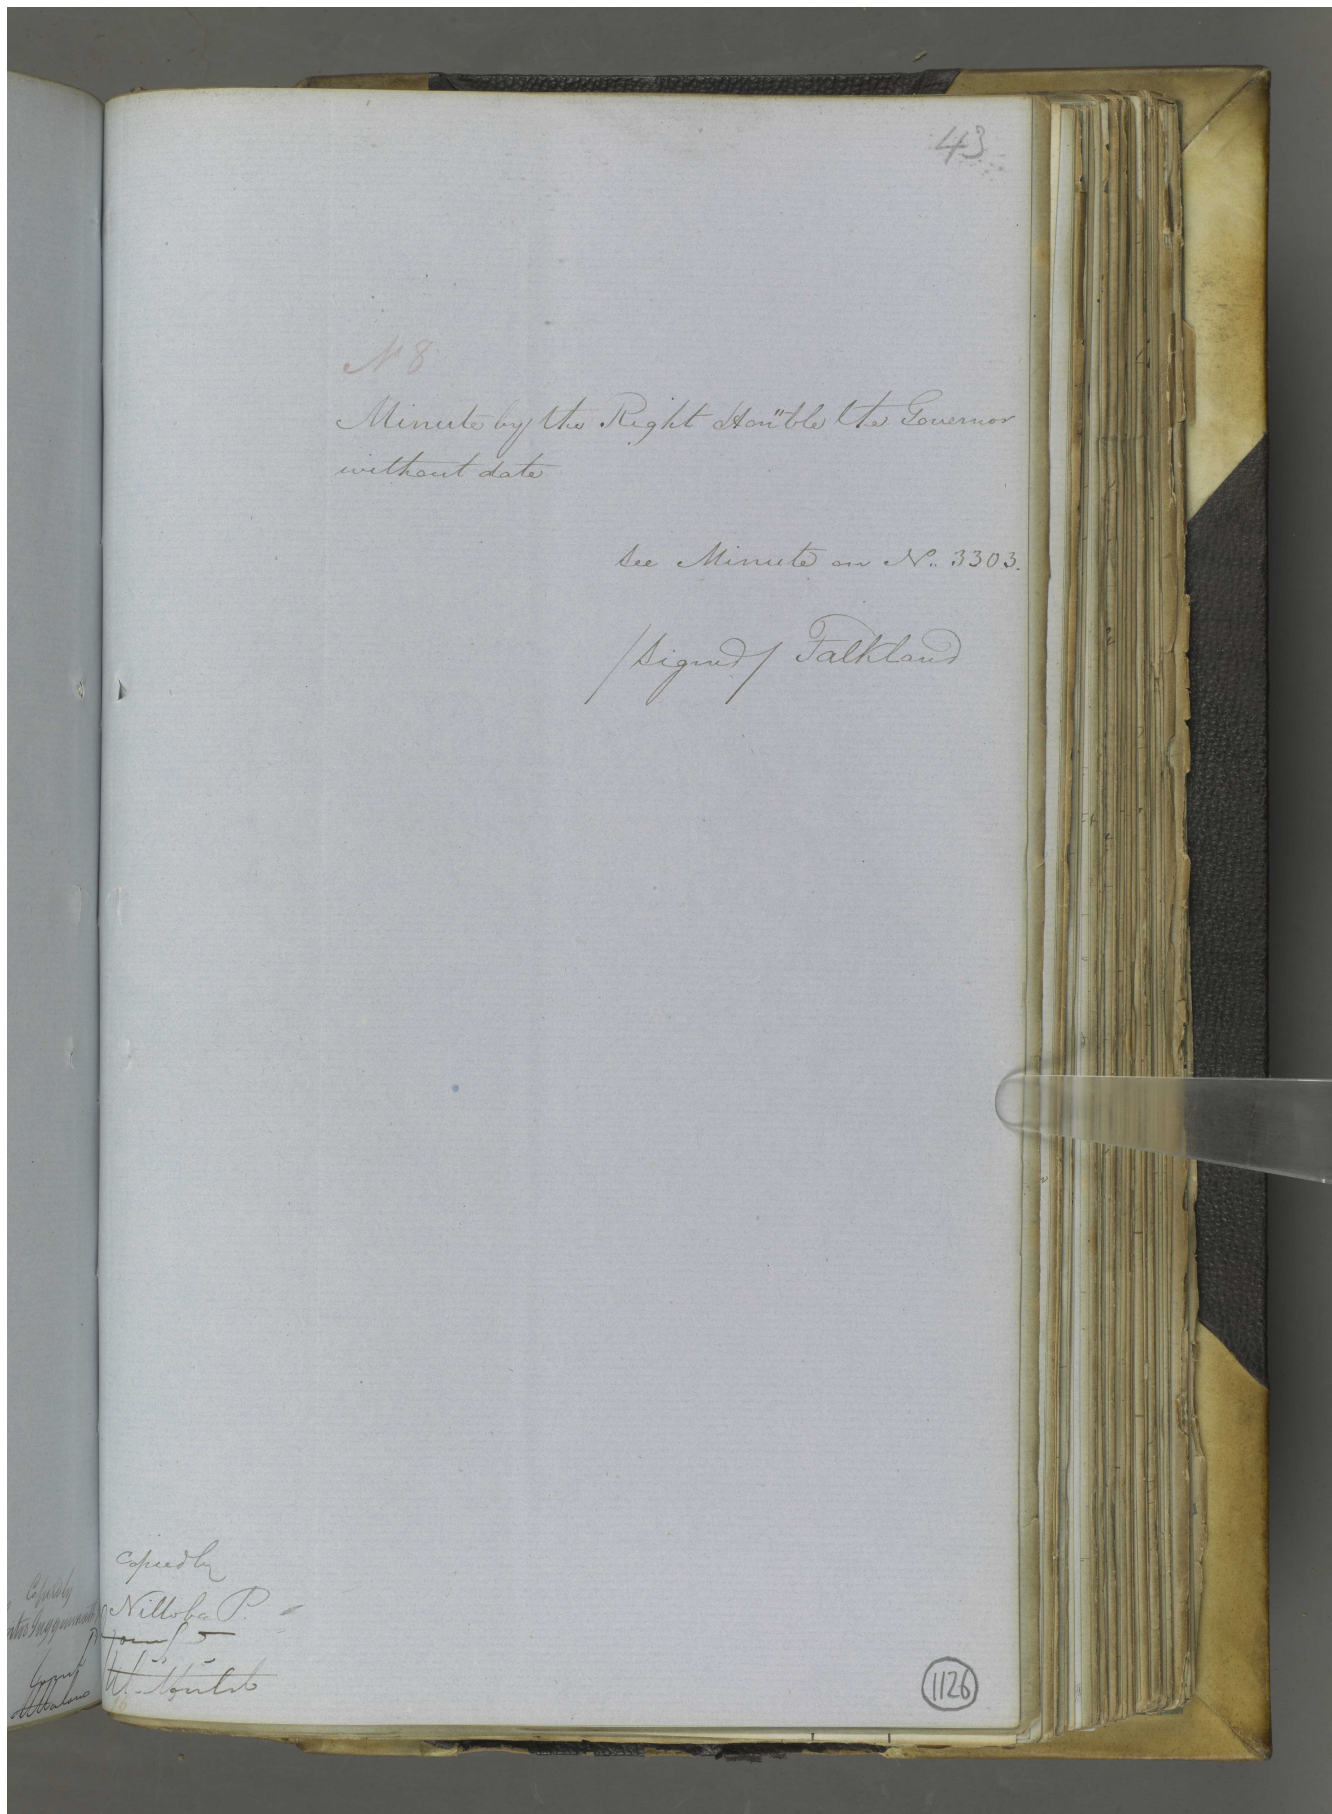 43
No 8
Minute by the Right Hon"ble the Governor
without date
See Minute on No. 3303.
/Signed/ Falkland
Copied by
Nilloba P.
1126
Copied by